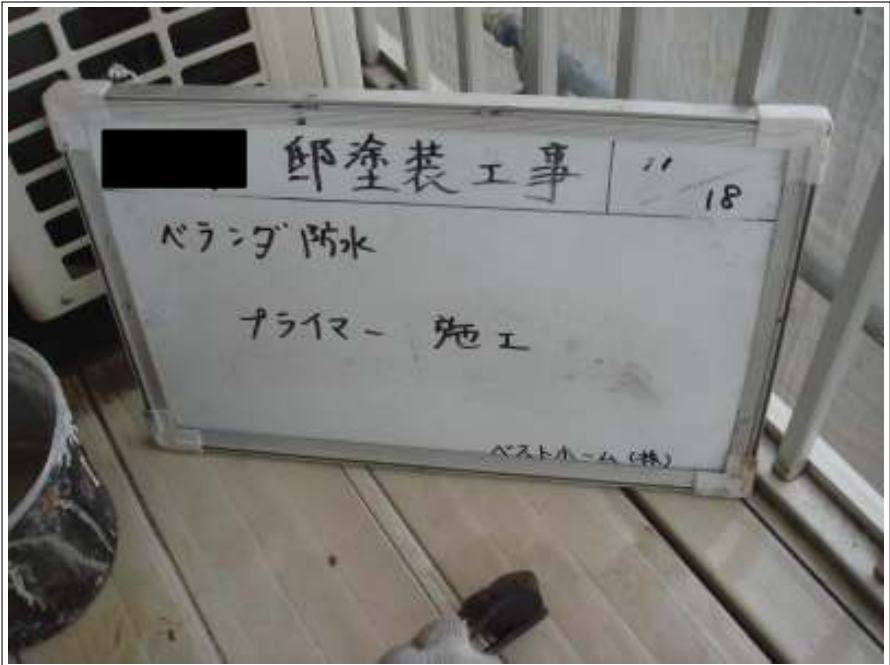 邸塗装工事 11/18
ベランダ防水
プライマー 施工
ベストホーム(株)